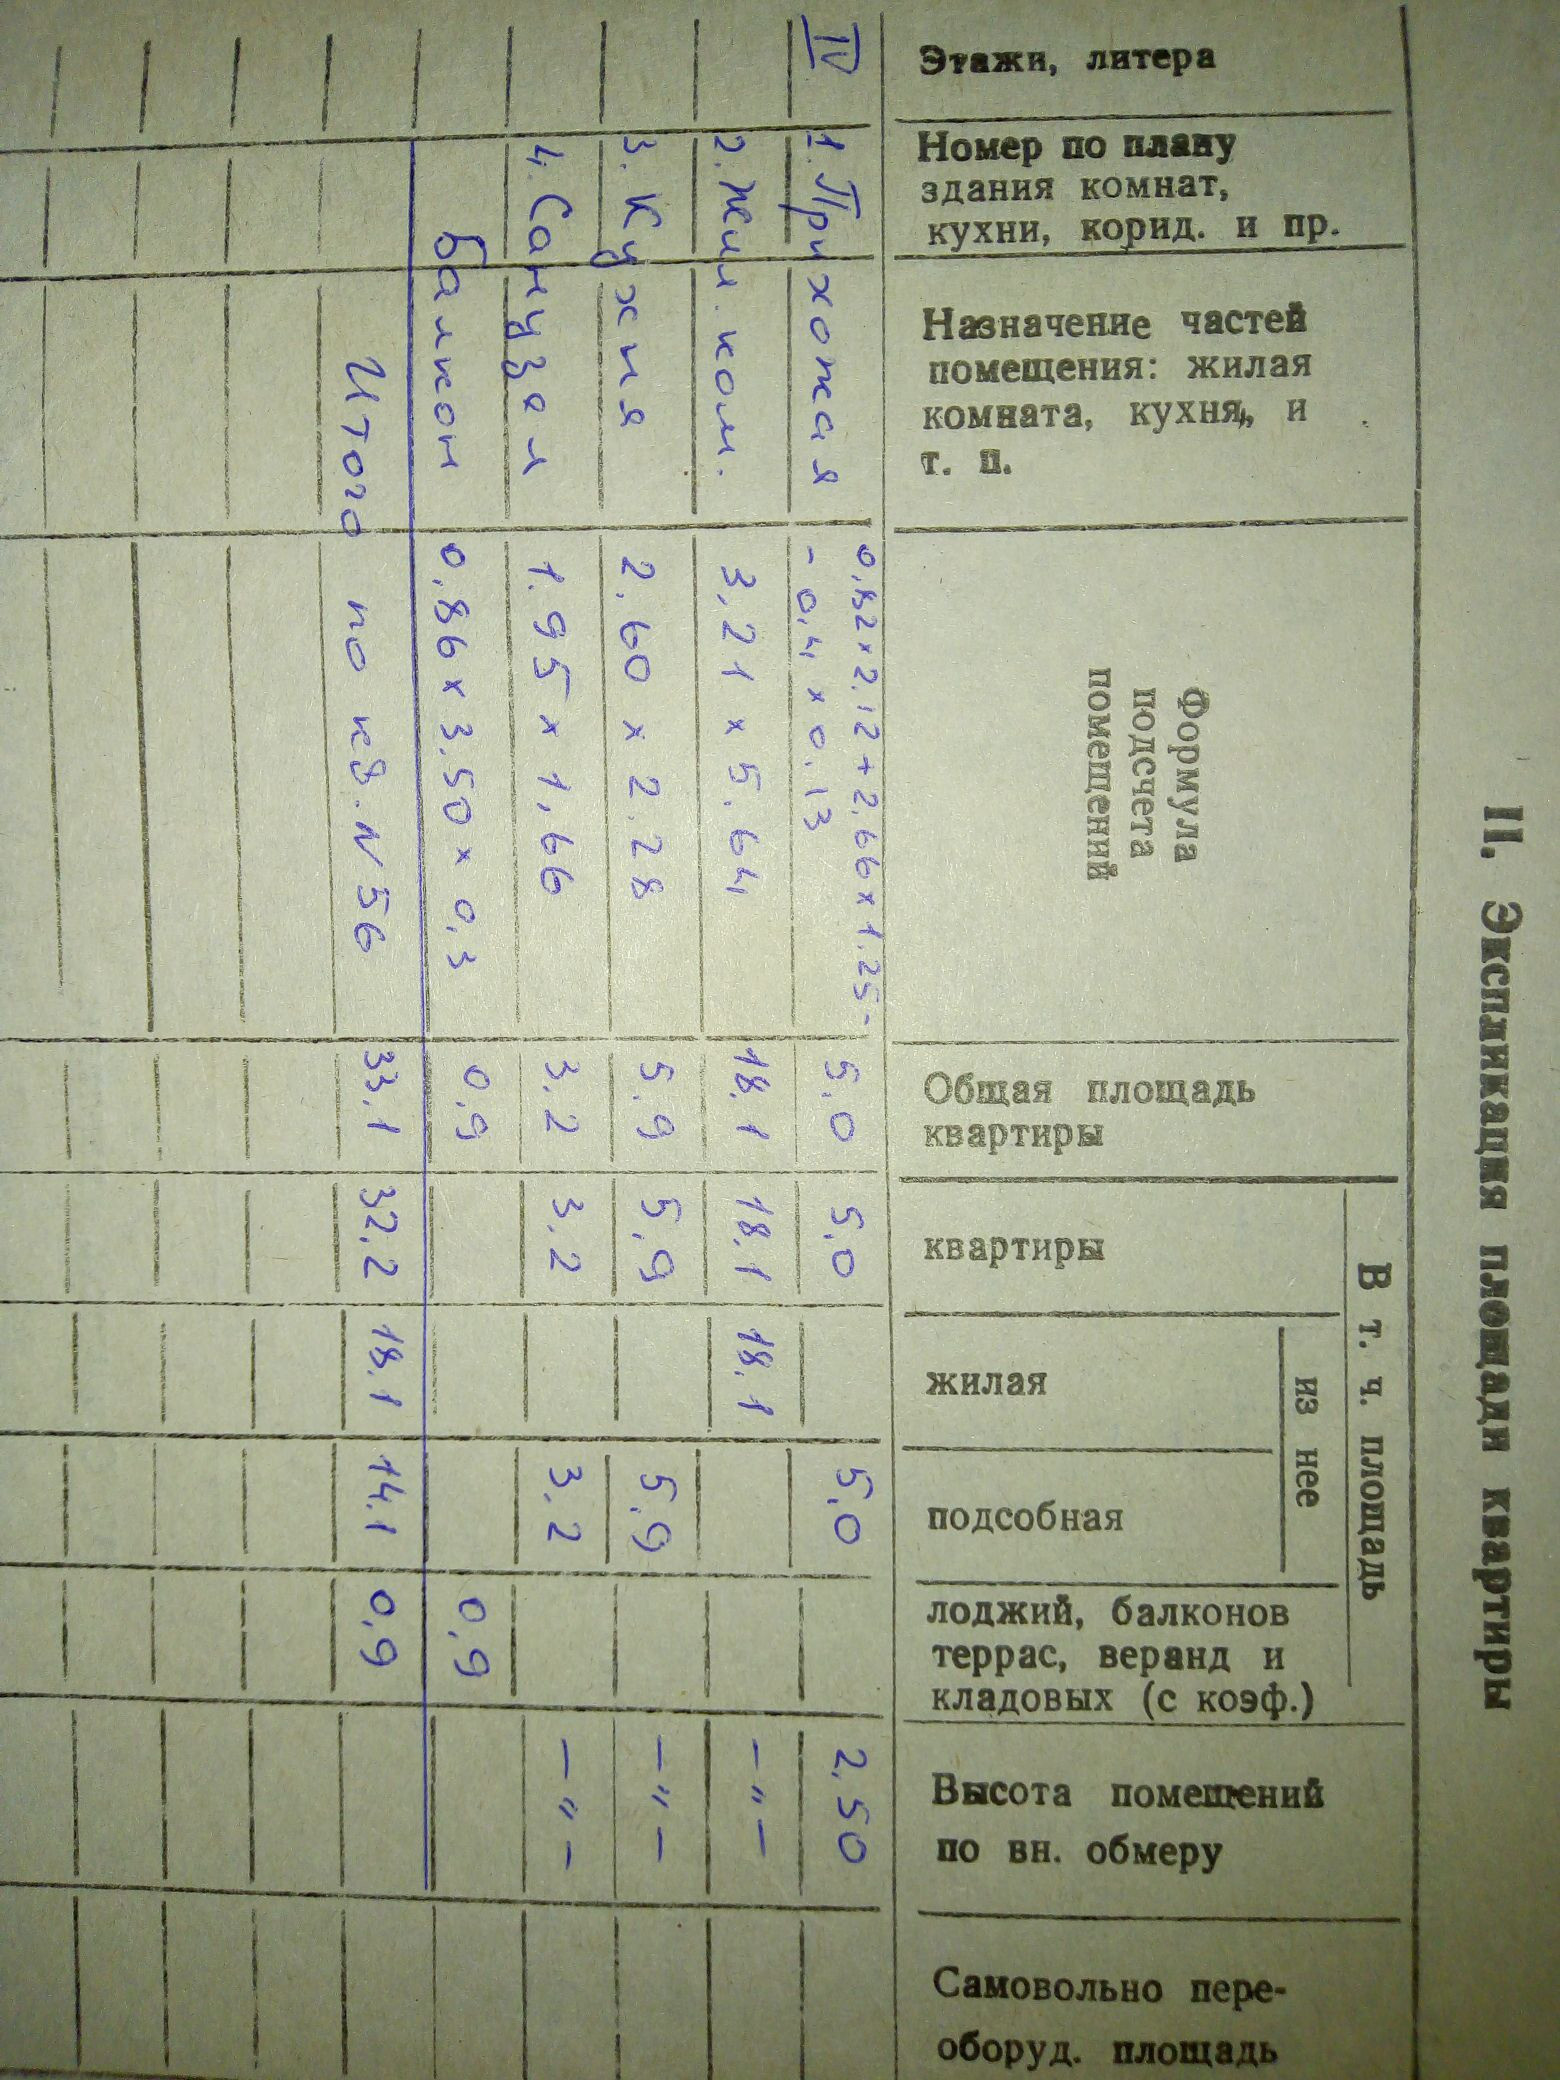 II. Экспликация площади квартиры
Этажи, литера
Номер по плану
здания комнат,
кухни, корид. и пр.
Назначение частей
помещения: жилая
комната, кухня, и
т. п.
Формула
подсчета
помещений
Общая площадь
квартиры
В т. ч. площадь
квартиры
из нее
жилая
подсобная
лоджий, балконов
террас, веранд и
кладовых (с коэф.)
Высота помещений
по вн. обмеру
Самовольно пере-
оборуд. площадь
IV 1. Прихожая 0,82 x 2,12 + 2,66 x 1.25 - 5,0 5,0 5,0 2.50
- 0,4 x 0,13
2. Жил. ком. 3,21 x 5.64 18.1 18.1 18.1 - " -
3. Кухня 2.60 x 2.28 5.9 5.9 5.9 - " -
4. Санузел 1.95 x 1,66 3.2 3.2 3.2 - " -
Балкон 0,86 x 3.50 x 0,3 0,9 0,9
Итого по кв. N 56 33,1 32,2 18.1 14.1 0,9